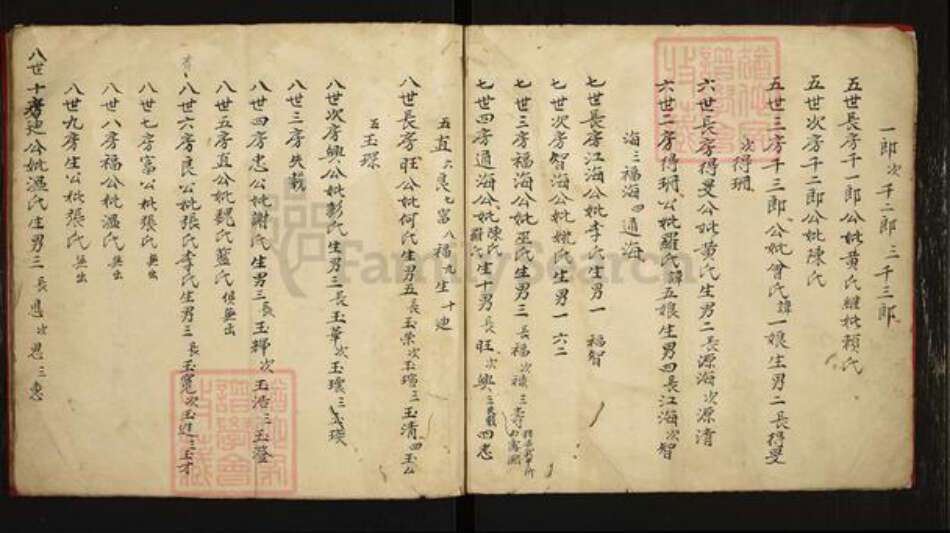 一郎次千二郎三千三郎
五世長房千一郎公妣黄氏継妣賴氏
五世次房千二郎公妣陳氏
五世三房千三郎公妣曾氏諱一娘生男二長得旻
次得珊
六世長房得旻公妣黄氏生男二長源海次源清
六世二房得珊公妣羅氏諱五娘生男四長江海次智
海三福海四通海
七世長房江海公妣李氏生男一 福智
七世次房智海公妣 氏生男一 六二
七世三房福海公妣巫氏生男三長福次禄三寿
七世四房通海公妣陳氏羅氏生十男長旺次興三失載四忠
五直六良七富八福九生十廸
八世長房旺公妣何氏生男五長玉荣次玉璸三玉清四玉公
五玉琛
八世次房興公妣彭氏生男三長玉華次玉瓊三玉瑛
八世三房失載
八世四房忠公妣謝氏生男三長玉輝次玉浩三玉澄
八世五房直公妣魏氏藍氏俱無出
八世六房良公妣張氏李氏生男三長玉寬次玉進三玉才
八世七房富公妣張氏無出
八世八房福公妣温氏無出
八世九房生公妣張氏無出
八世十房廸公妣温氏生男三長 次恩三惠
FamilySearch